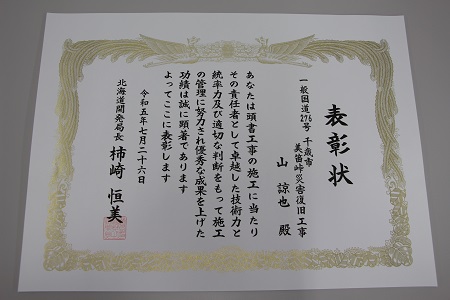 表彰状
一般国道276号 千歳市
美笛峠災害復旧工事
山 諒也 殿
あなたは頭書工事の施工に当たり
その責任者として卓越した技術力と
統率力及び適切な判断をもって施工
の管理に努力され優秀な成果を上げた
功績は誠に顕著であります
よってここに表彰します
令和五年七月二十六日
北海道開発局長 柿崎 恒美